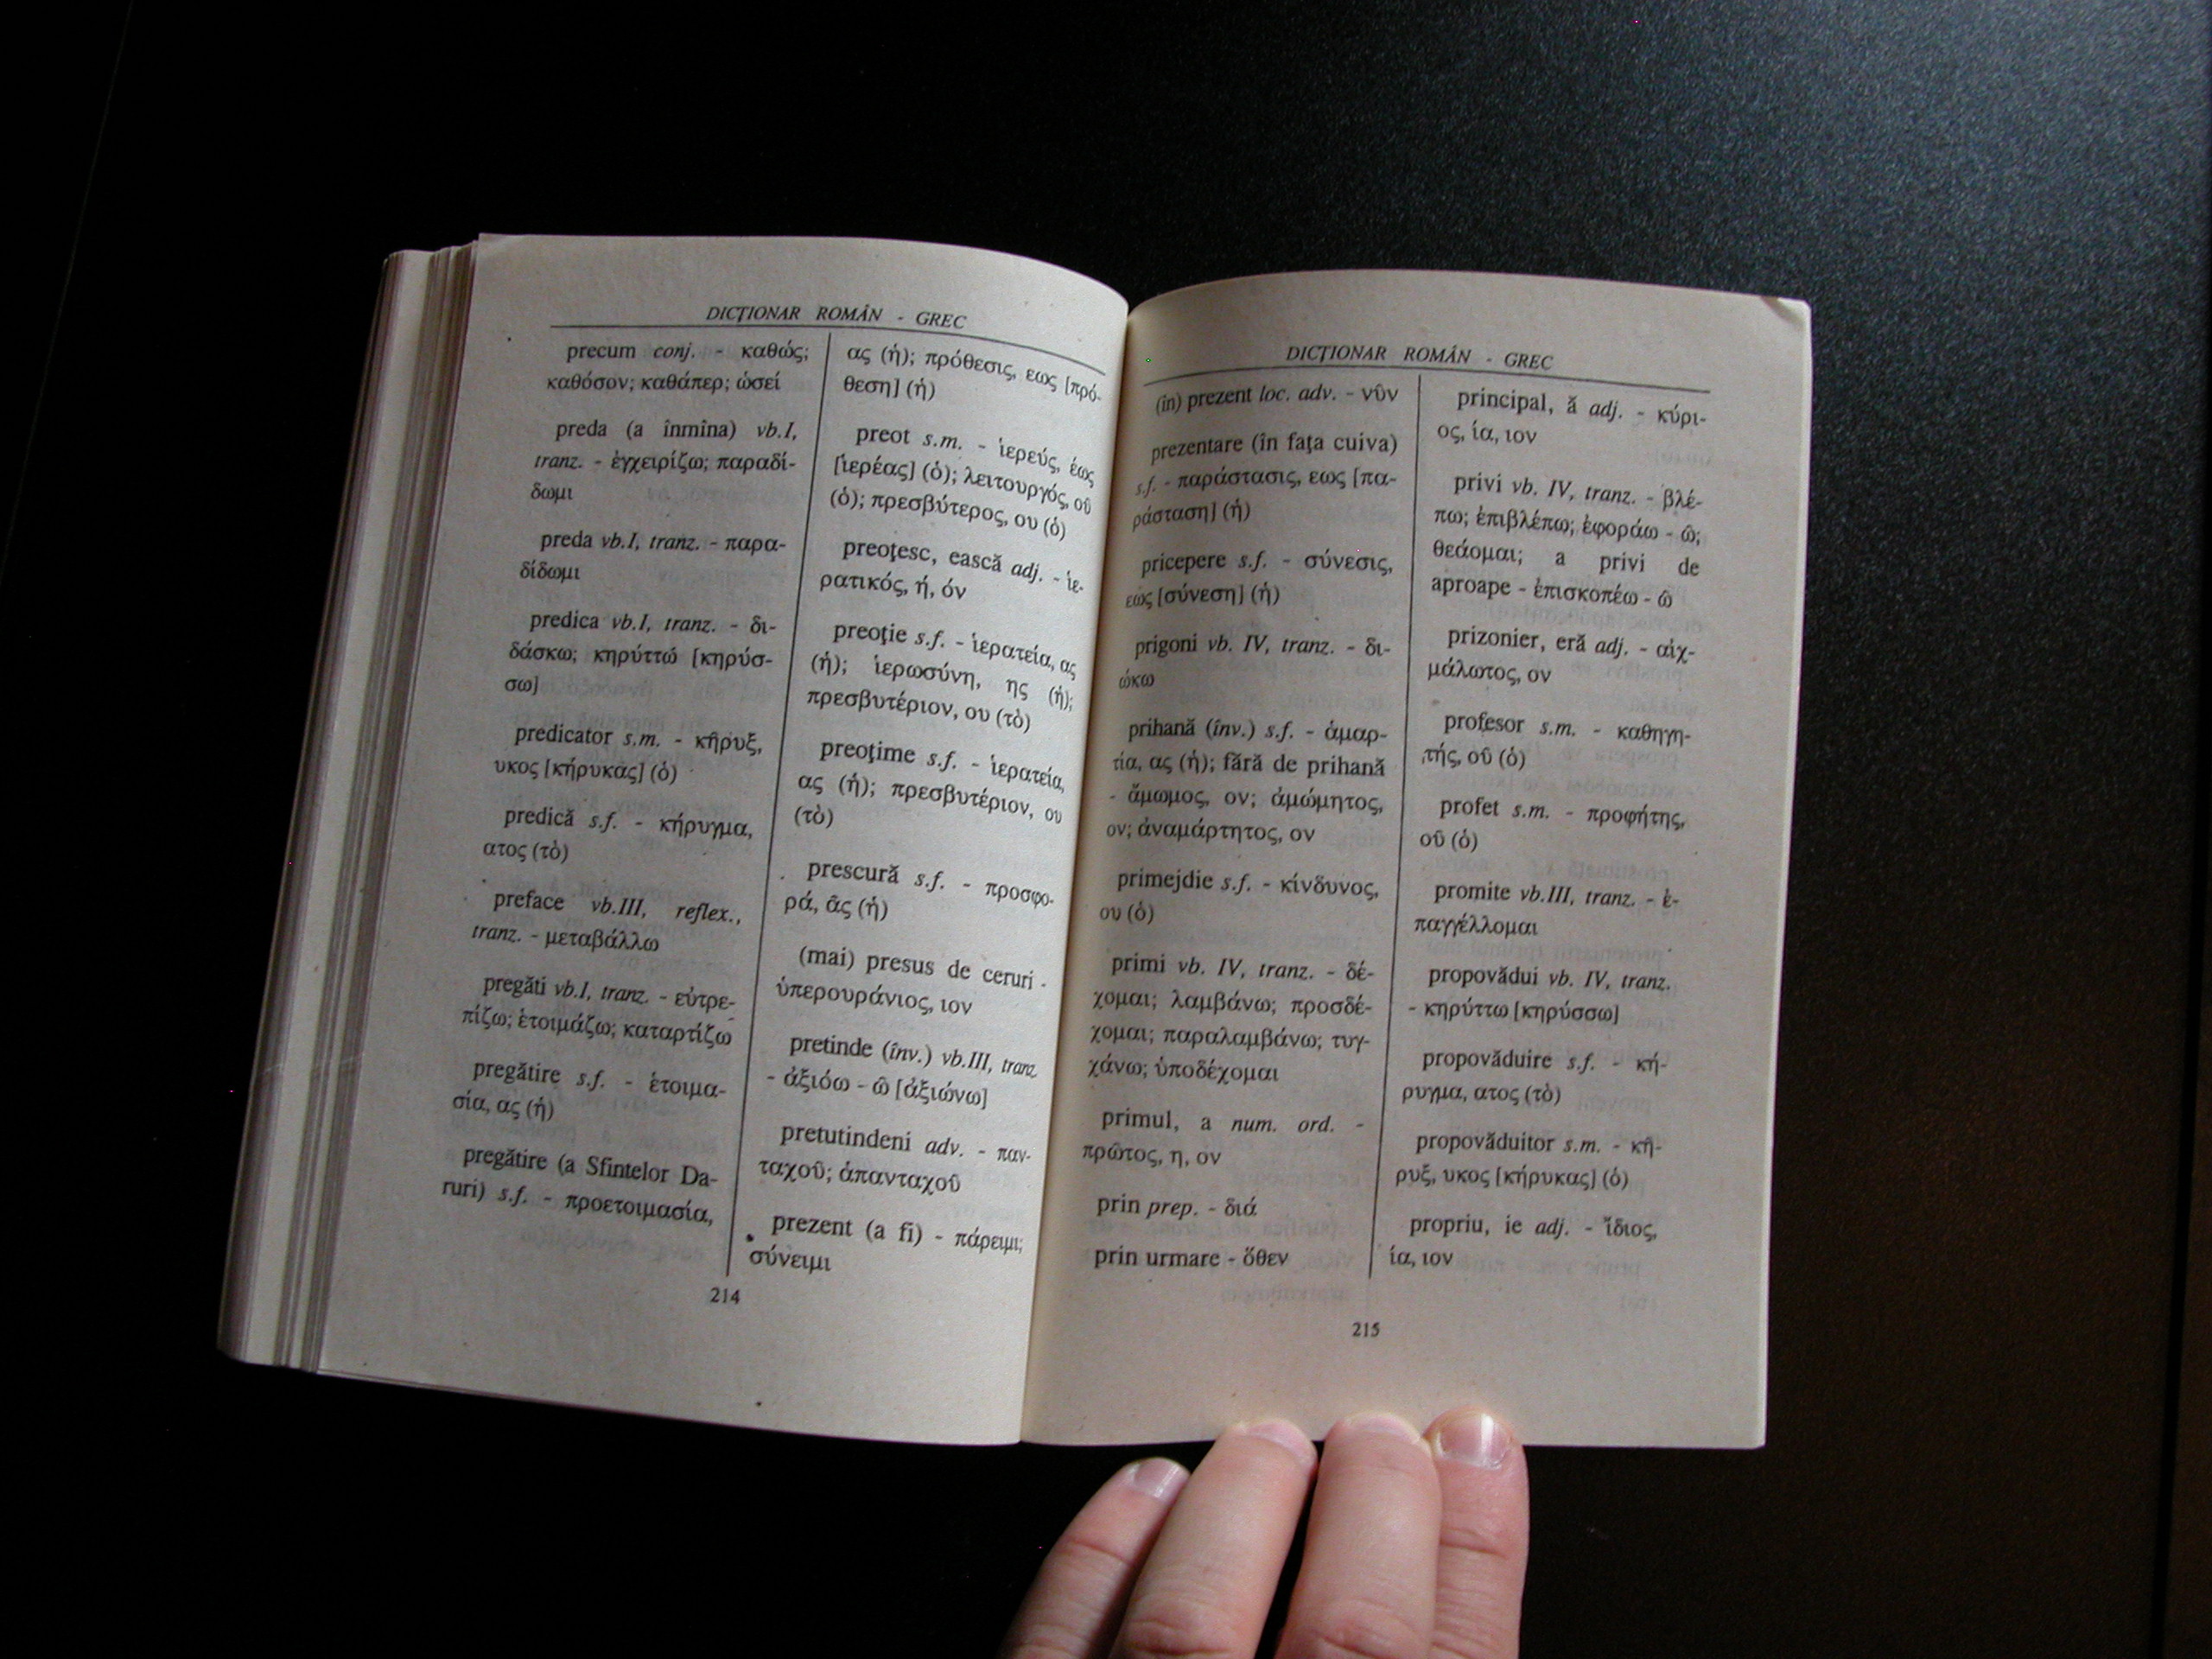 DICŢIONAR ROMÂN - GREC
precum conj. - καθώς;
καθόσον; καθάπερ; ὡσεί
preda (a înmîna) vb.I,
tranz. - ἐγχειρίζω; παραδί-
δωμι
preda vb.I, tranz. - παρα-
δίδωμι
predica vb.I, tranz. - δι-
δάσκω; κηρύττώ [κηρύσ-
σω]
predicator s.m. - κῆρυξ,
υκος [κήρυκας] (ὁ)
predică s.f. - κήρυγμα,
ατος (τὸ)
preface vb.III, reflex.,
tranz. - μεταβάλλω
pregăti vb.I, tranz. - εὐτρε-
πίζω; ἑτοιμάζω; καταρτίζω
pregătire s.f. - ἑτοιμα-
σία, ας (ἡ)
pregătire (a Sfintelor Da-
ruri) s.f. - προετοιμασία,
ας (ἡ); πρόθεσις, εως [πρό-
θεση] (ἡ)
preot s.m. - ἱερεύς, έως
[ἱερέας] (ὁ); λειτουργός, οῦ
(ὁ); πρεσβύτερος, ου (ὁ)
preoţesc, ească adj. - ἱε-
ρατικός, ή, όν
preoţie s.f. - ἱερατεία, ας
(ἡ); ἱερωσύνη, ης (ἡ);
πρεσβυτέριον, ου (τὸ)
preoţime s.f. - ἱερατεία,
ας (ἡ); πρεσβυτέριον, ου
(τὸ)
prescură s.f. - προσφο-
ρά, ᾶς (ἡ)
(mai) presus de ceruri -
ὑπερουράνιος, ιον
pretinde (înv.) vb.III, tranz.
- ἀξιόω - ῶ [ἀξιώνω]
pretutindeni adv. - παν-
ταχοῦ; ἁπανταχοῦ
prezent (a fi) - πάρειμι;
σύνειμι
214
DICŢIONAR ROMÂN - GREC
(în) prezent loc. adv. - νῦν
prezentare (în faţa cuiva)
s.f. - παράστασις, εως [πα-
ράσταση] (ἡ)
pricepere s.f. - σύνεσις,
εως [σύνεση] (ἡ)
prigoni vb. IV, tranz. - δι-
ώκω
prihană (înv.) s.f. - ἁμαρ-
τία, ας (ἡ); fără de prihană
- ἄμωμος, ον; ἀμώμητος,
ον; ἀναμάρτητος, ον
primejdie s.f. - κίνδυνος,
ου (ὁ)
primi vb. IV, tranz. - δέ-
χομαι; λαμβάνω; προσδέ-
χομαι; παραλαμβάνω; τυγ-
χάνω; ὑποδέχομαι
primul, a num. ord. -
πρῶτος, η, ον
prin prep. - διά
prin urmare - ὅθεν
principal, ă adj. - κύρι-
ος, ία, ιον
privi vb. IV, tranz. - βλέ-
πω; ἐπιβλέπω; ἐφοράω - ῶ;
θεάομαι; a privi de
aproape - ἐπισκοπέω - ῶ
prizonier, eră adj. - αἰχ-
μάλωτος, ον
profesor s.m. - καθηγη-
τής, οῦ (ὁ)
profet s.m. - προφήτης,
οῦ (ὁ)
promite vb.III, tranz. - ἐ-
παγγέλλομαι
propovădui vb. IV, tranz.
- κηρύττω [κηρύσσω]
propovăduire s.f. - κή-
ρυγμα, ατος (τὸ)
propovăduitor s.m. - κῆ-
ρυξ, υκος [κήρυκας] (ὁ)
propriu, ie adj. - ἴδιος,
ία, ιον
215